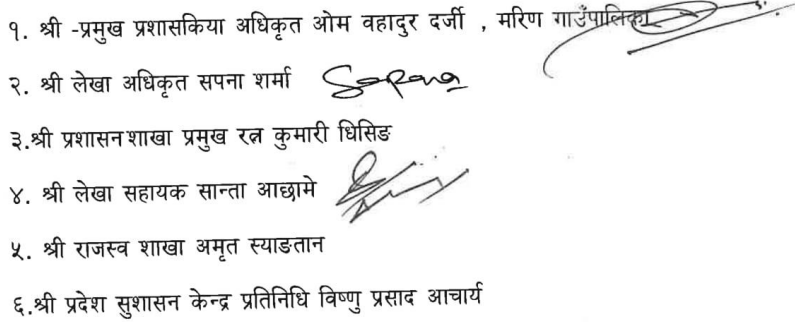 १. श्री -प्रमुख प्रशासकिया अधिकृत ओम वहादुर दर्जी , मरिण गाउँपालिका
२. श्री लेखा अधिकृत सपना शर्मा Sapana
३.श्री प्रशासन शाखा प्रमुख रत्न कुमारी धिसिङ
४. श्री लेखा सहायक सान्ता आछामे
५. श्री राजस्व शाखा अमृत स्याङतान
६.श्री प्रदेश सुशासन केन्द्र प्रतिनिधि विष्णु प्रसाद आचार्य